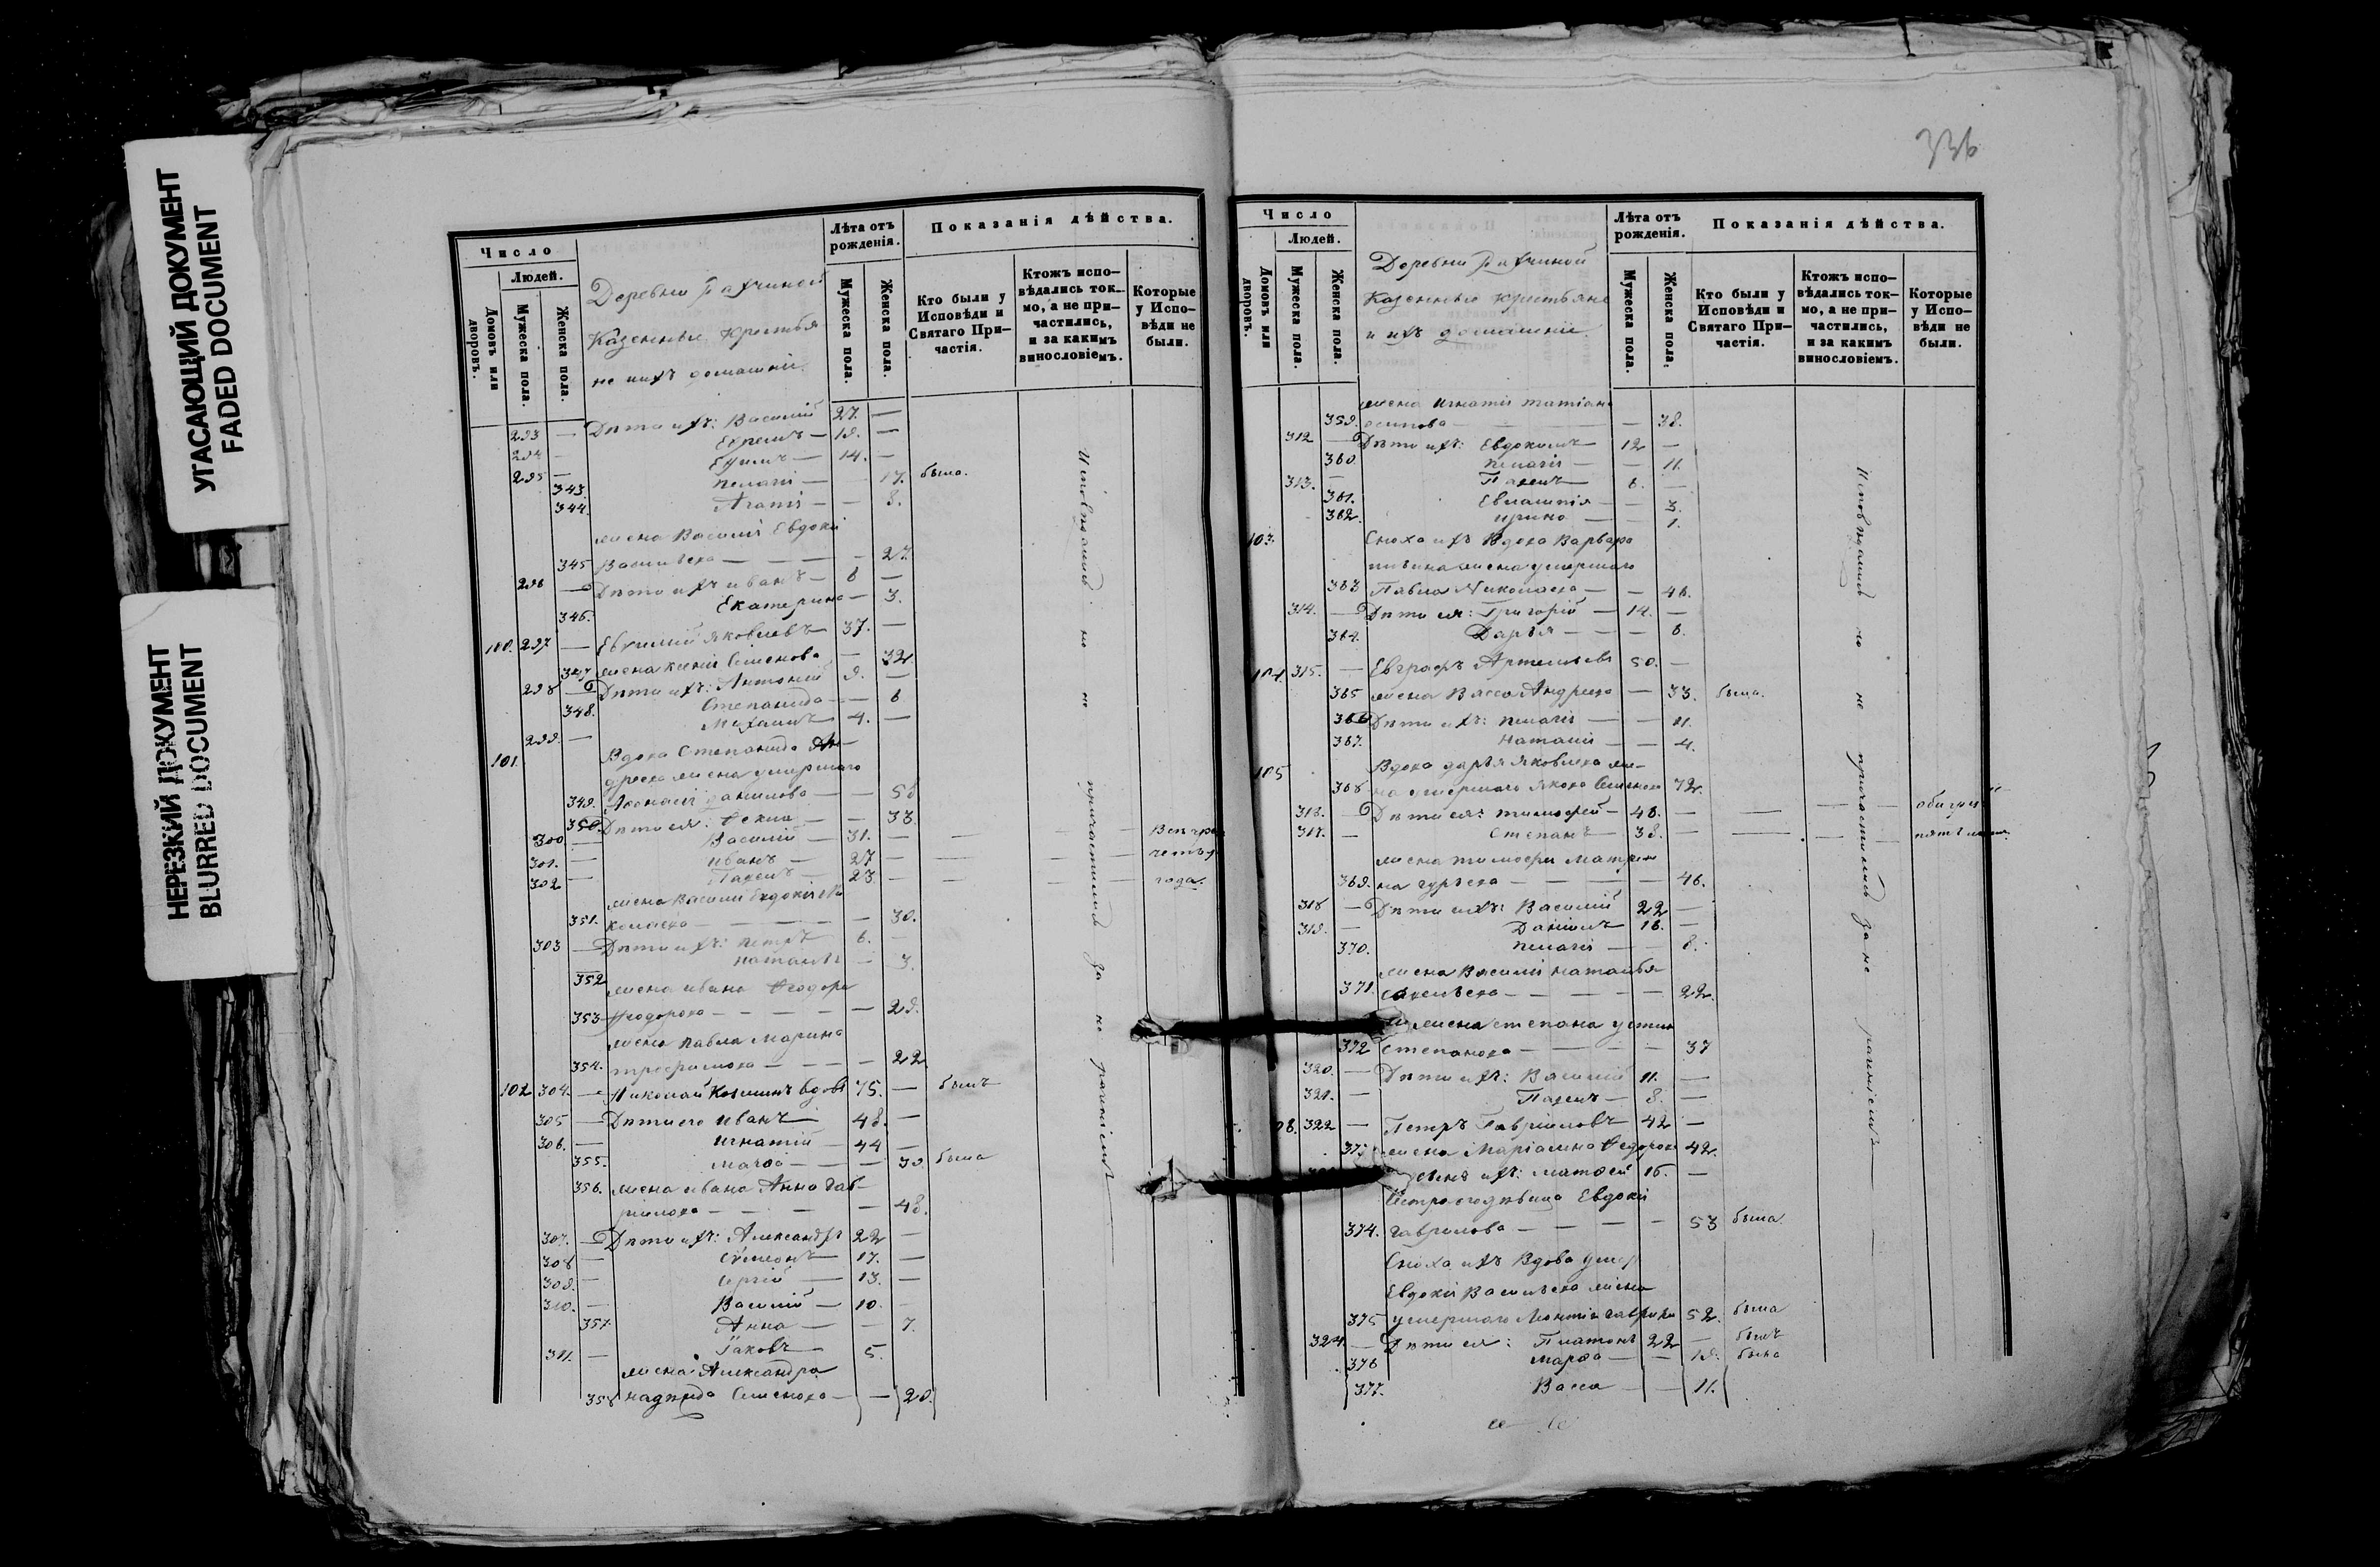 УГАСАЮЩИЙ ДОКУМЕНТ
FADED DOCUMENT
НЕРЕЗКИЙ ДОКУМЕНТ
BLURRED DOCUMENT
Число
Людей.
Домовъ или дворовъ.
Мужеска пола.
Женска пола.
Деревни
Казенные крестья
не и ихъ домашніи.
Лѣта отъ рожденія.
Мужеска пола.
Женска пола.
Показанія дѣйства.
Кто были у Исповѣди и Святаго При-
частія.
Ктожъ испо-
вѣдались ток-
мо, а не при-
частились,
и за какимъ
винословіемъ.
Которые
у Испо-
вѣди не
были.
293 — Дѣти ихъ: Василій 27. —
294 — Ефремъ — 19. —
295 — Ефимъ — 14. —
343. Пелагія — — 17. была.
344. Агапія — — 8.
жена Василія Евдокія
345 Васильева — — — — 27.
296 — Дѣти ихъ Иванъ — 6 —
346. Екатерина — 3.
100. 297 — Евфимій Яковлевъ 37. —
347 жена Ксенія Семенова — 32.
298 — Дѣти ихъ: Антоній 9. —
348. Степанида — — 6
299. — Михаилъ 4. —
101. Вдова Степанида Ан-
дреева жена умершаго
349. Афанасія Данилова — — 58
350. Дѣти ея: Фекла — — 33
300 — Василій — 31. — — —
301. — Иванъ — 27 — — —
302 — Павелъ — 23 — — — года.
жена Василія Евдокія Ни
351. колаева — — — — 30.
303 — Дѣти ихъ: Петръ 6. —
352 Наталія — 3.
жена Ивана Феодора
353 Феодорова — — — — 29.
жена Павла Марина
354. Трофимова — — — 22
102 304. — Николай Козминъ вдовъ 75. — былъ
305 — Дѣти его Иванъ — 48. —
306. — Игнатій — 44 —
355. Марфа — — — 39. была
356. жена Ивана Анна Гав-
рилова — — — — 48.
307. — Дѣти ихъ: Александръ 22 —
308 — Сѵмеонъ 17. —
309. — Сергій — 13. —
310. — Василій — 10. —
357. Анна — — 7.
311. — Іаковъ 5.
жена Александра
358 Надежда Семенова — — 20.
Исповѣдались но не причастились за не раченіемъ
336
Число
Людей.
Домовъ или дворовъ.
Мужеска пола.
Женска пола.
Деревни
Казенные крестьяне
и ихъ домашніи
Лѣта отъ рожденія.
Мужеска пола.
Женска пола.
Показанія дѣйства.
Кто были у Исповѣди и Святаго При-
частія.
Ктожъ испо-
вѣдались ток-
мо, а не при-
частились,
и за какимъ
винословіемъ.
Которые
у Испо-
вѣди не
были.
жена Игнатія Татіана
359. Осипова — — — 38.
312 — Дѣти ихъ: Евдокимъ 12 —
360. Пелагія — — 11.
313. — Павелъ 6. —
361. Евлампія — — 3.
362. Ирина — — 1.
103. Сноха ихъ Вдова Варвара
жена умершаго
363 Павла Николаева — — 46.
314. — Дѣти ея: Григорій — 14. —
364. Дарья — — — 6.
104. 315. — Евграфъ Артемьевъ 50. —
365 жена Васса Андреева — 33. была.
366 Дѣти ихъ: Пелагія — — 11.
367. Наталія — — 4.
105 Вдова Дарья Яковлева же-
368 на умершаго Якова Семенова 72.
316. — Дѣти ея: Тимофей — 46. — — —
317. — Степанъ — 38. — — —
жена Тимофея Матре
369. на Гурьева — — — — 46.
318 — Дѣти ихъ: Василій 22 —
319. — Даніилъ 16. —
370. Пелагія — — 8.
жена Василія Наталья
371. Савельева — — — — 22.
жена Степана Устин
372 Степанова — — — — 37
320. — Дѣти ихъ: Василій 11. —
321. — Павелъ — 8. —
322 — Петръ Гавріиловъ 42 —
373 жена Маріамна Федорова 42.
ихъ: Матвей 16. —
Сестра его дѣвица Евдокія
374. Гаврилова — — — — 53 была.
Сноха ихъ Вдова умер
Евдокія Васильева жена
375 умершаго Леонтія Гаврилова 52. была
324. — Дѣти ея: Платонъ 22 — былъ
376 Марфа — — 19. была
377. Васса — — 11.
Исповѣдались но не причастились за не раченіемъ